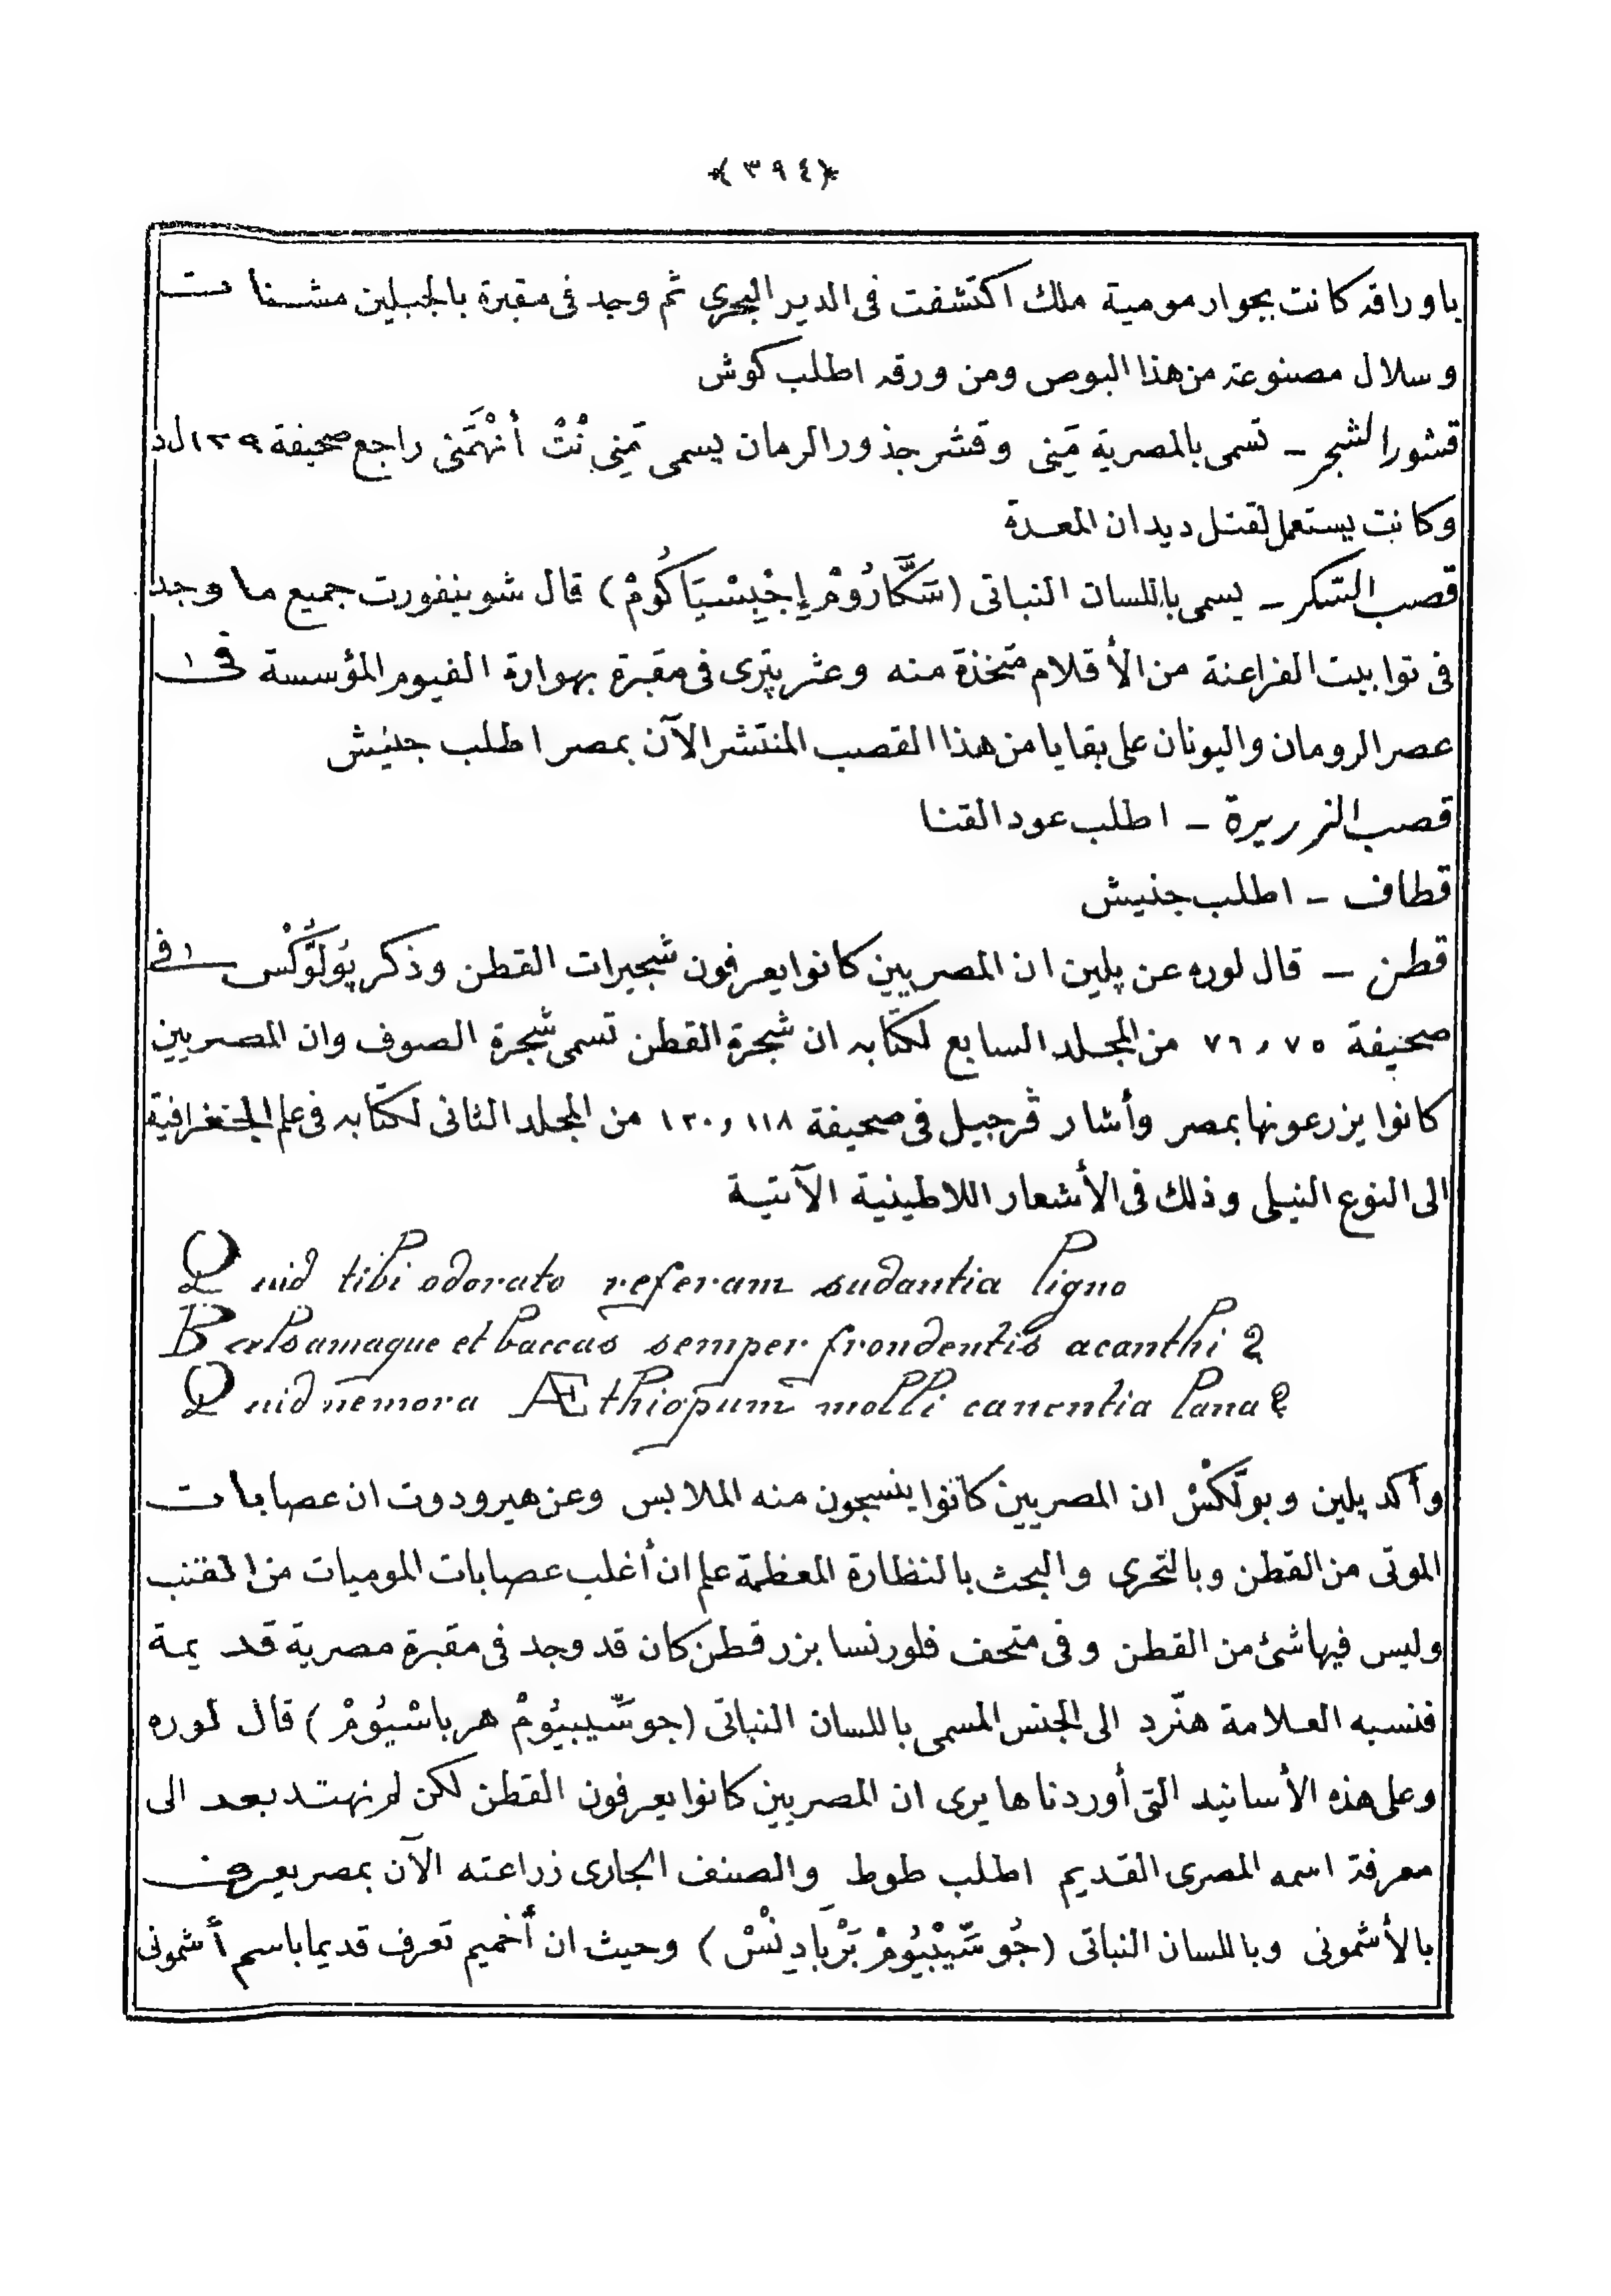 ﴿٣٩٤﴾
باوراقه كانت بجوار مومية ملك اكتشفت فى الدير البحرى ثم وجد فى مقبرة بالجبلين مشنات
وسلال مصنوعة من هذا البوص ومن ورقه اطلب كوش
قشور الشجر ــ تسمى بالمصرية مَيِنى وقشر جذور الرمان يسمى مَيِنى نْتْ أَنْهَمَنى راجع صحيفة ١٣٩ لـ
وكانت يستعمل لقتل ديدان المعدة
قصب السّكر ــ يسمى باللسان النباتى (سَكَّارُومْ إِجْيِبْسْيَاكُومْ) قال شوينفورت جميع ما وجد
فى توابيت الفراعنة من الأقلام متخذة منه وعثر پترى فى مقبرة بهوارة الفيوم المؤسسة فى
عصر الرومان واليونان على بقايا من هذا القصب المنتشر الآن بمصر اطلب جنيش
قصب الذريرة ــ اطلب عود القنا
قطاف ــ اطلب جنيش
قطن ــ قال لوره عن پلين ان المصريين كانوا يعرفون شجيرات القطن وذكر پُولُّوكْس فى
صحيفة ٧٥ و ٧٦ من المجلد السابع لكتابه ان شجرة القطن تسمى شجرة الصوف وان المصريين
كانوا يزرعونها بمصر وأشار ڤرجيل فى صحيفة ١١٨ و ١٣٠ من المجلد الثانى لكتابه فى علم الجغرافية
الى النوع النيلى وذلك فى الأشعار اللاطينية الآتية
Quid tibi odorato referam sudantia ligno
Balsamaque et baccas semper frondentis acanthi ?
Quid nemora Æthiopum molli canentia lana ?
وأكد پلين وبولَّكسْ ان المصريين كانوا ينسجون منه الملابس وعن هيرودوت ان عصابات
الموتى من القطن وبالتحرى والبحث بالنظارة المعظمة علم ان أغلب عصابات الموميات من القنب
وليس فيها شئ من القطن وفى متحف فلورنسا بزر قطن كان قد وجد فى مقبرة مصرية قديمة
فنسبه العلامة هنّرد الى الجنس المسمى باللسان النباتى (جوسّيبيُومْ هرباسْيُومْ) قال لوره
وعلى هذه الأسانيد التى أوردناها يرى ان المصريين كانوا يعرفون القطن لكن لم نهتد بعد الى
معرفة اسمه المصرى القديم اطلب طوط والصنف الجارى زراعته الآن بمصر يعرف
بالأشمونى وباللسان النباتى (جُوسّيْبْيُومْ بَرْبَادِنْسْ) وحيث ان أخميم تعرف قديما باسم أشمونى